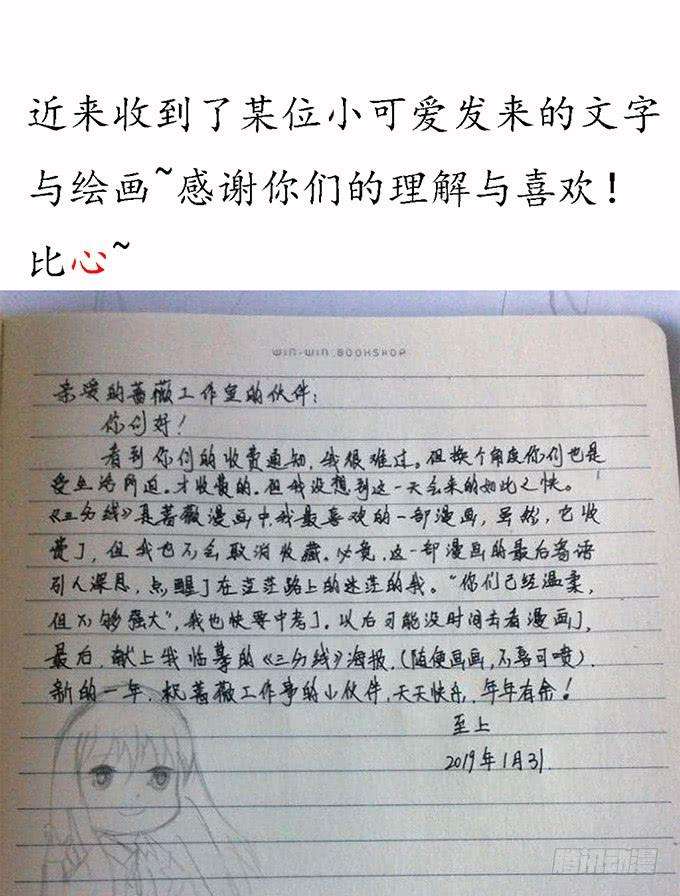 近来收到了某位小可爱发来的文字
与绘画~感谢你们的理解与喜欢！
比心~
WIN-WIN BOOKSHOP
亲爱的蔷薇工作室的伙伴：
你们好！
看到你们的收费通知，我很难过。但换个角度你们也是
受生活所迫，才收费的。但我没想到这一天会来的如此之快。
《三分线》是蔷薇漫画中我最喜欢的一部漫画，虽然，它收
费了，但我也不会取消收藏。毕竟，这一部漫画的最后寄语
引人深思，点醒了在茫茫路上的迷茫的我。“你们已经温柔，
但不够强大”，我也快要中考了，以后可能没时间去看漫画了，
最后，献上我临摹的《三分线》海报，（随便画画，不喜可喷）.
新的一年，祝蔷薇工作室的小伙伴，天天快乐，年年有余！
至上
2019年1月31.
腾讯动漫